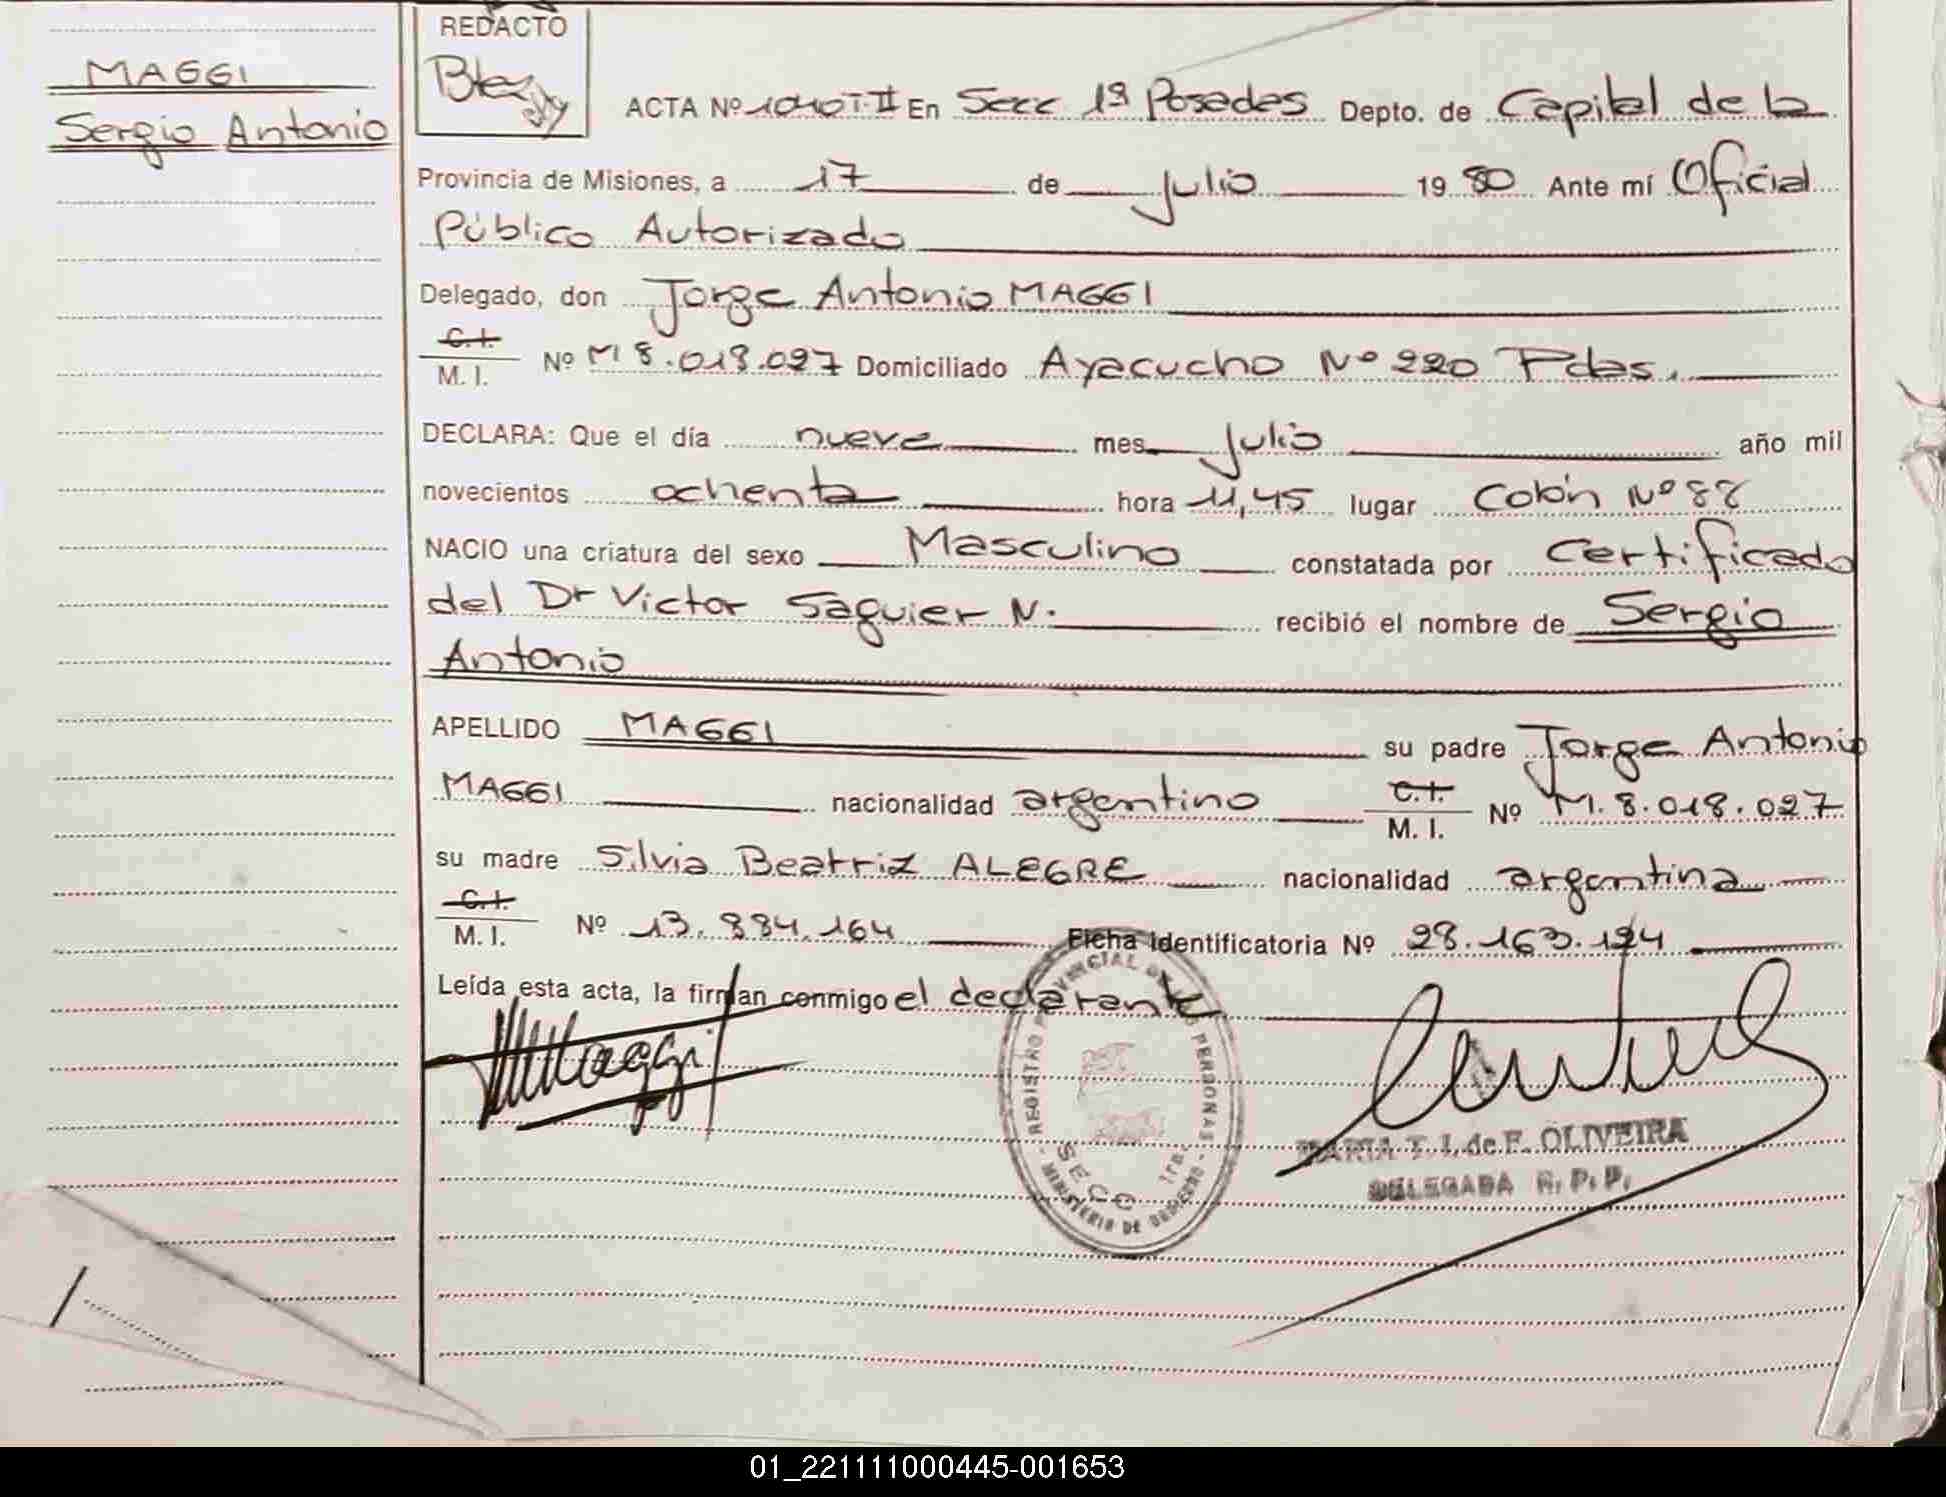 MAGGI
Sergio Antonio
REDACTO
ACTA Nº 1040 T-II En Secc 1ª Posadas Depto. de Capital de la
Provincia de Misiones, a 17 de Julio 19 80 Ante mí Oficial
Público Autorizado
Delegado, don Jorge Antonio MAGGI
C.I.
M. I. Nº M 8.018.027 Domiciliado Ayacucho Nº 220 Pdas.
DECLARA: Que el día nueve mes Julio año mil
novecientos ochenta hora 11,45 lugar Colón Nº 88
NACIO una criatura del sexo Masculino constatada por Certificado
del Dr Victor Saguier N. recibió el nombre de Sergio
Antonio
APELLIDO MAGGI su padre Jorge Antonio
MAGGI nacionalidad argentino C.I.
M. I. Nº M. 8.018.027
su madre Silvia Beatriz ALEGRE nacionalidad argentina
C.I.
M. I. Nº 13.884.164 Ficha Identificatoria Nº 28.163.124
Leída esta acta, la firman conmigo el declarante
Maggi
REGISTRO PROVINCIAL DE LAS PERSONAS
SECC 1ra
MINISTERIO DE GOBIERNO
MARIA T. I. de F. OLIVEIRA
DELEGADA R. P. P.
01_221111000445-001653